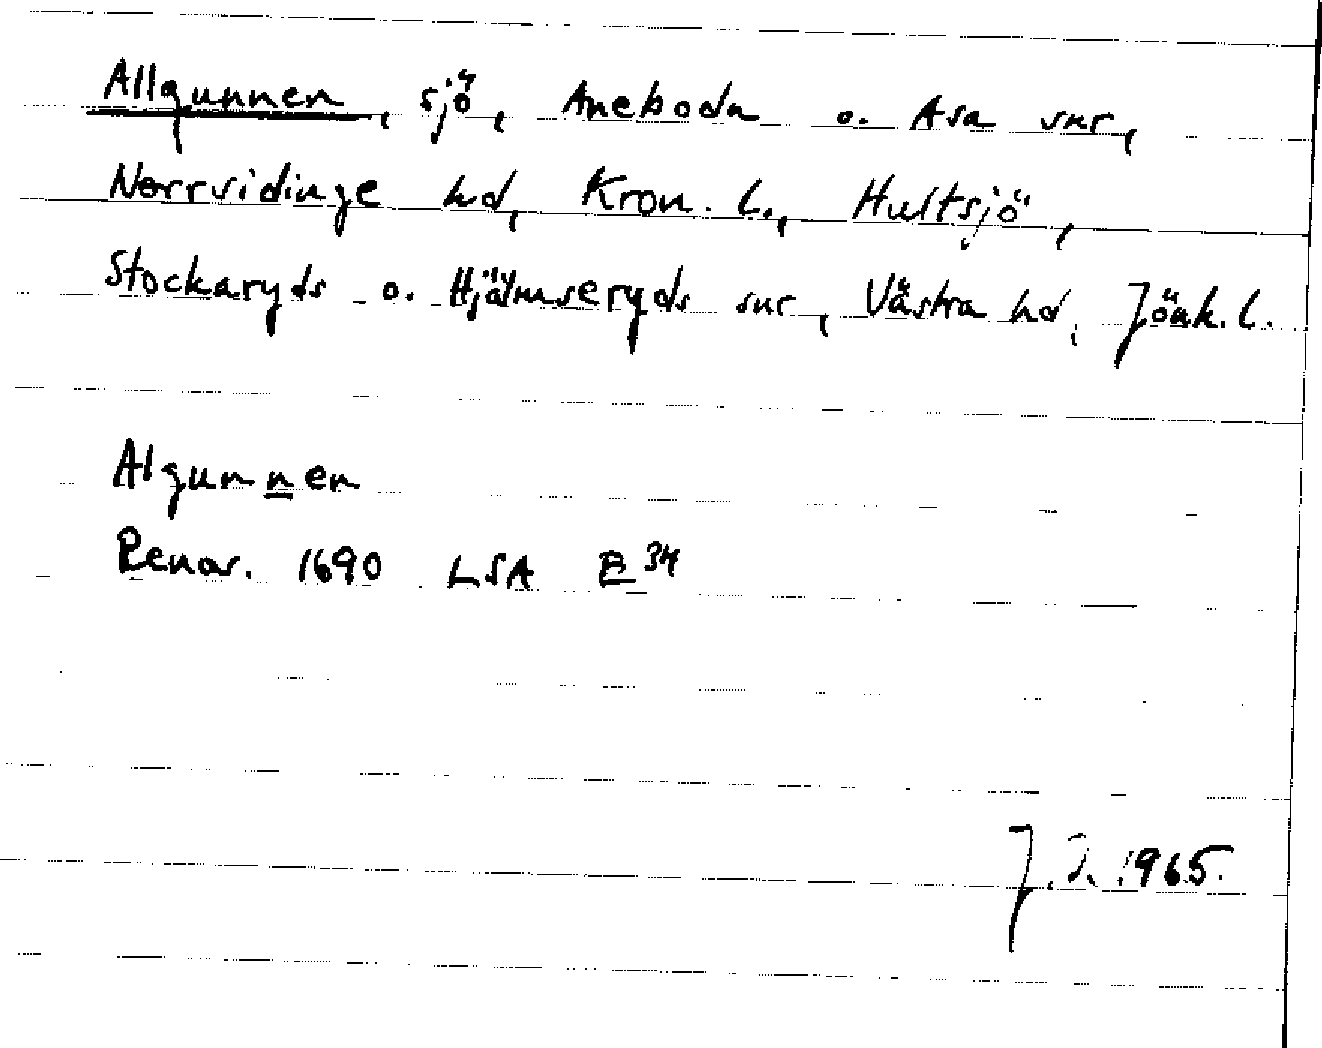 Allgunnen, sjö, Aneboda o. Asa snr,
Norrvidinge hd, Kron. l., Hultsjö,
Stockaryds o. Hjälmseryds snr, Västra hd, Jönk. l.
Algunnen
Renov. 1690 LSA E 34
1965.